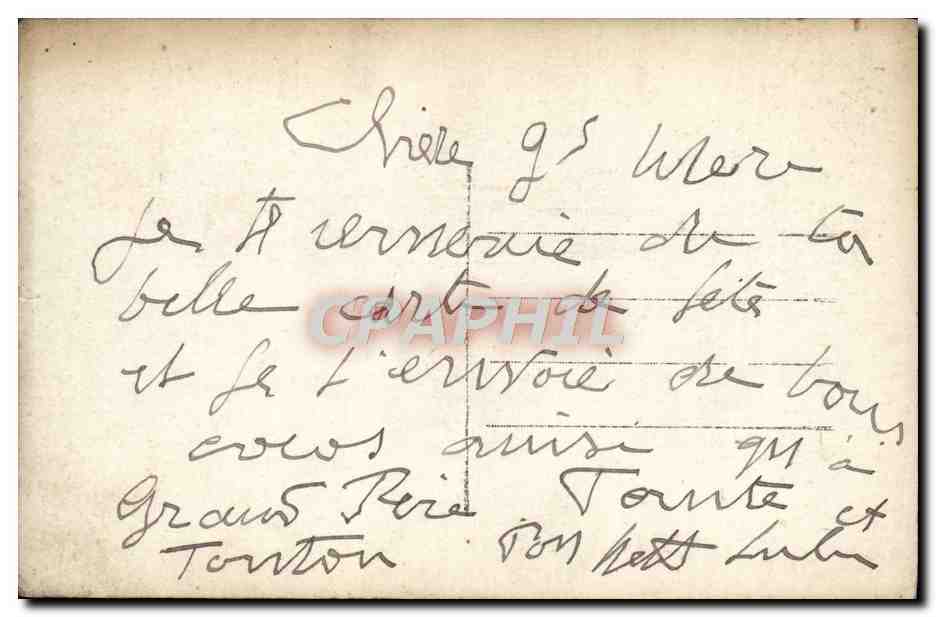 Chère gd Mere
Je te remercie de ta
belle carte de fête
et je t'envoie de bons
cocos ainsi qu'à
Grand Père Tante et
Tonton Ton petit Lulu
CPAPHIL